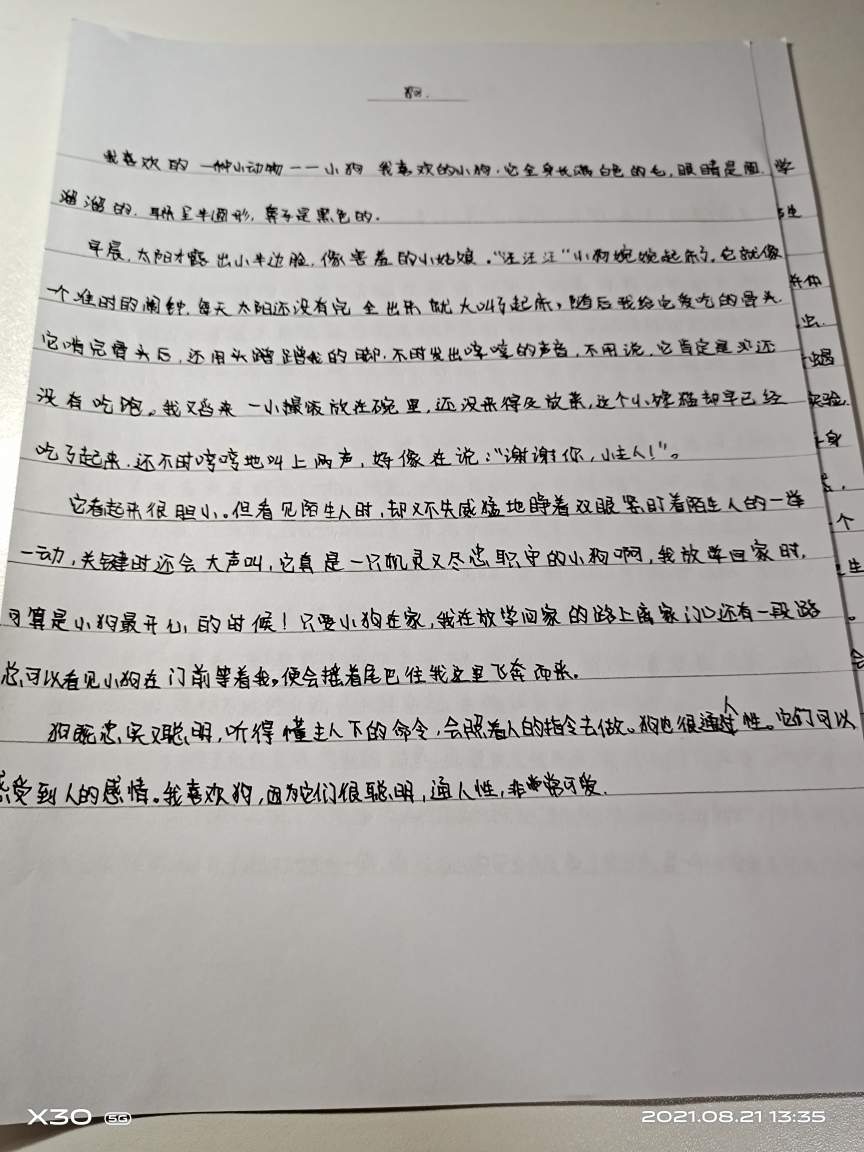 狗.
我喜欢的一种小动物——小狗 我喜欢的小狗.它全身长满白色的毛,眼睛是圆
溜溜的.耳朵呈半圆形,鼻子是黑色的.
早晨,太阳才露出小半边脸,像害羞的小姑娘."汪汪汪"小狗婉婉起床了,它就像
一个准时的闹钟,每天太阳还没有完全出来就大叫了起床,随后我给它爱吃的骨头.
它啃完骨头后,还用头蹭蹭我的脚.不时发出哼哼的声音,不用说,它肯定是还
没有吃饱。我又舀来一小撮饭放在碗里,还没来得及放菜,这个小馋猫却早已经
吃了起来.还不时哼哼地叫上两声,好像在说:"谢谢你,小主人!"。
它看起来很胆小。但看见陌生人时,却又不失威猛地睁着双眼紧盯着陌生人的一举
一动,关键时还会大声叫,它真是一只机灵又尽忠职守的小狗啊,我放学回家时,
可算是小狗最开心的时候!只要小狗在家,我在放学回家的路上离家门口还有一段路
总可以看见小狗在门前等着我。便会摇着尾巴往我这里飞奔而来。
狗既忠实又聪明,听得懂主人下的命令,会照着人的指令去做。狗也很通人性。它们可以
感受到人的感情。我喜欢狗,因为它们很聪明,通人性,非常可爱.
学
生
虫.
实验.
身
个
生
。
会
X30 5G
2021.08.21 13:35